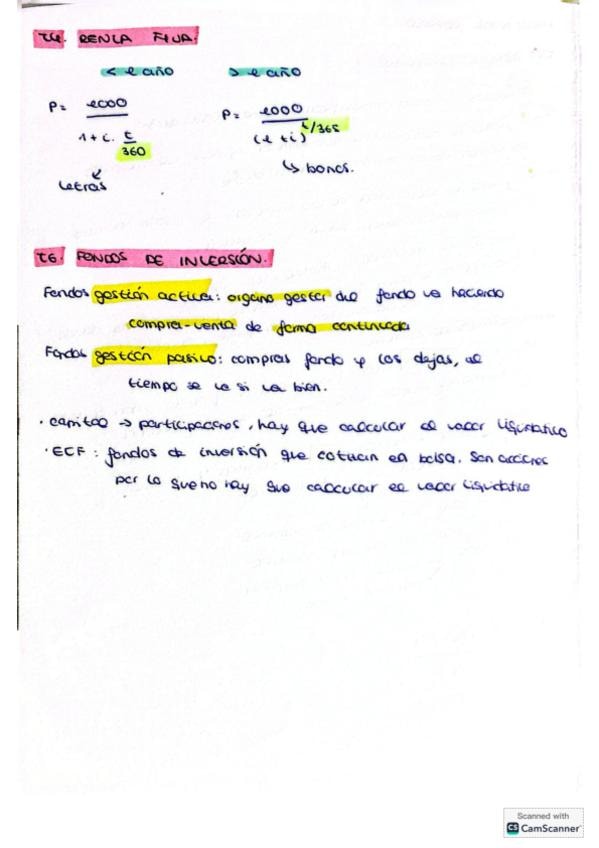 T4. RENTA FIJA.
< 1 año    > 1 año
P = 1000 / 1 + i · t/360    P = 1000 / (1 + i)^t/365
Letras    ↳ bonos.
T6. FONDOS DE INVERSIÓN.
Fondos gestión activa: organo gestor del fondo va haciendo
compra-venta de forma continuada
Fondos gestión pasiva: compras fondo y los dejas, al
tiempo se ve si va bien.
· capital → participaciones, hay que calcular el valor liquidativo
· ECF: fondos de inversión que cotizan en bolsa. Son acciones
por lo que no hay que calcular el valor liquidativo
Scanned with
CS CamScanner